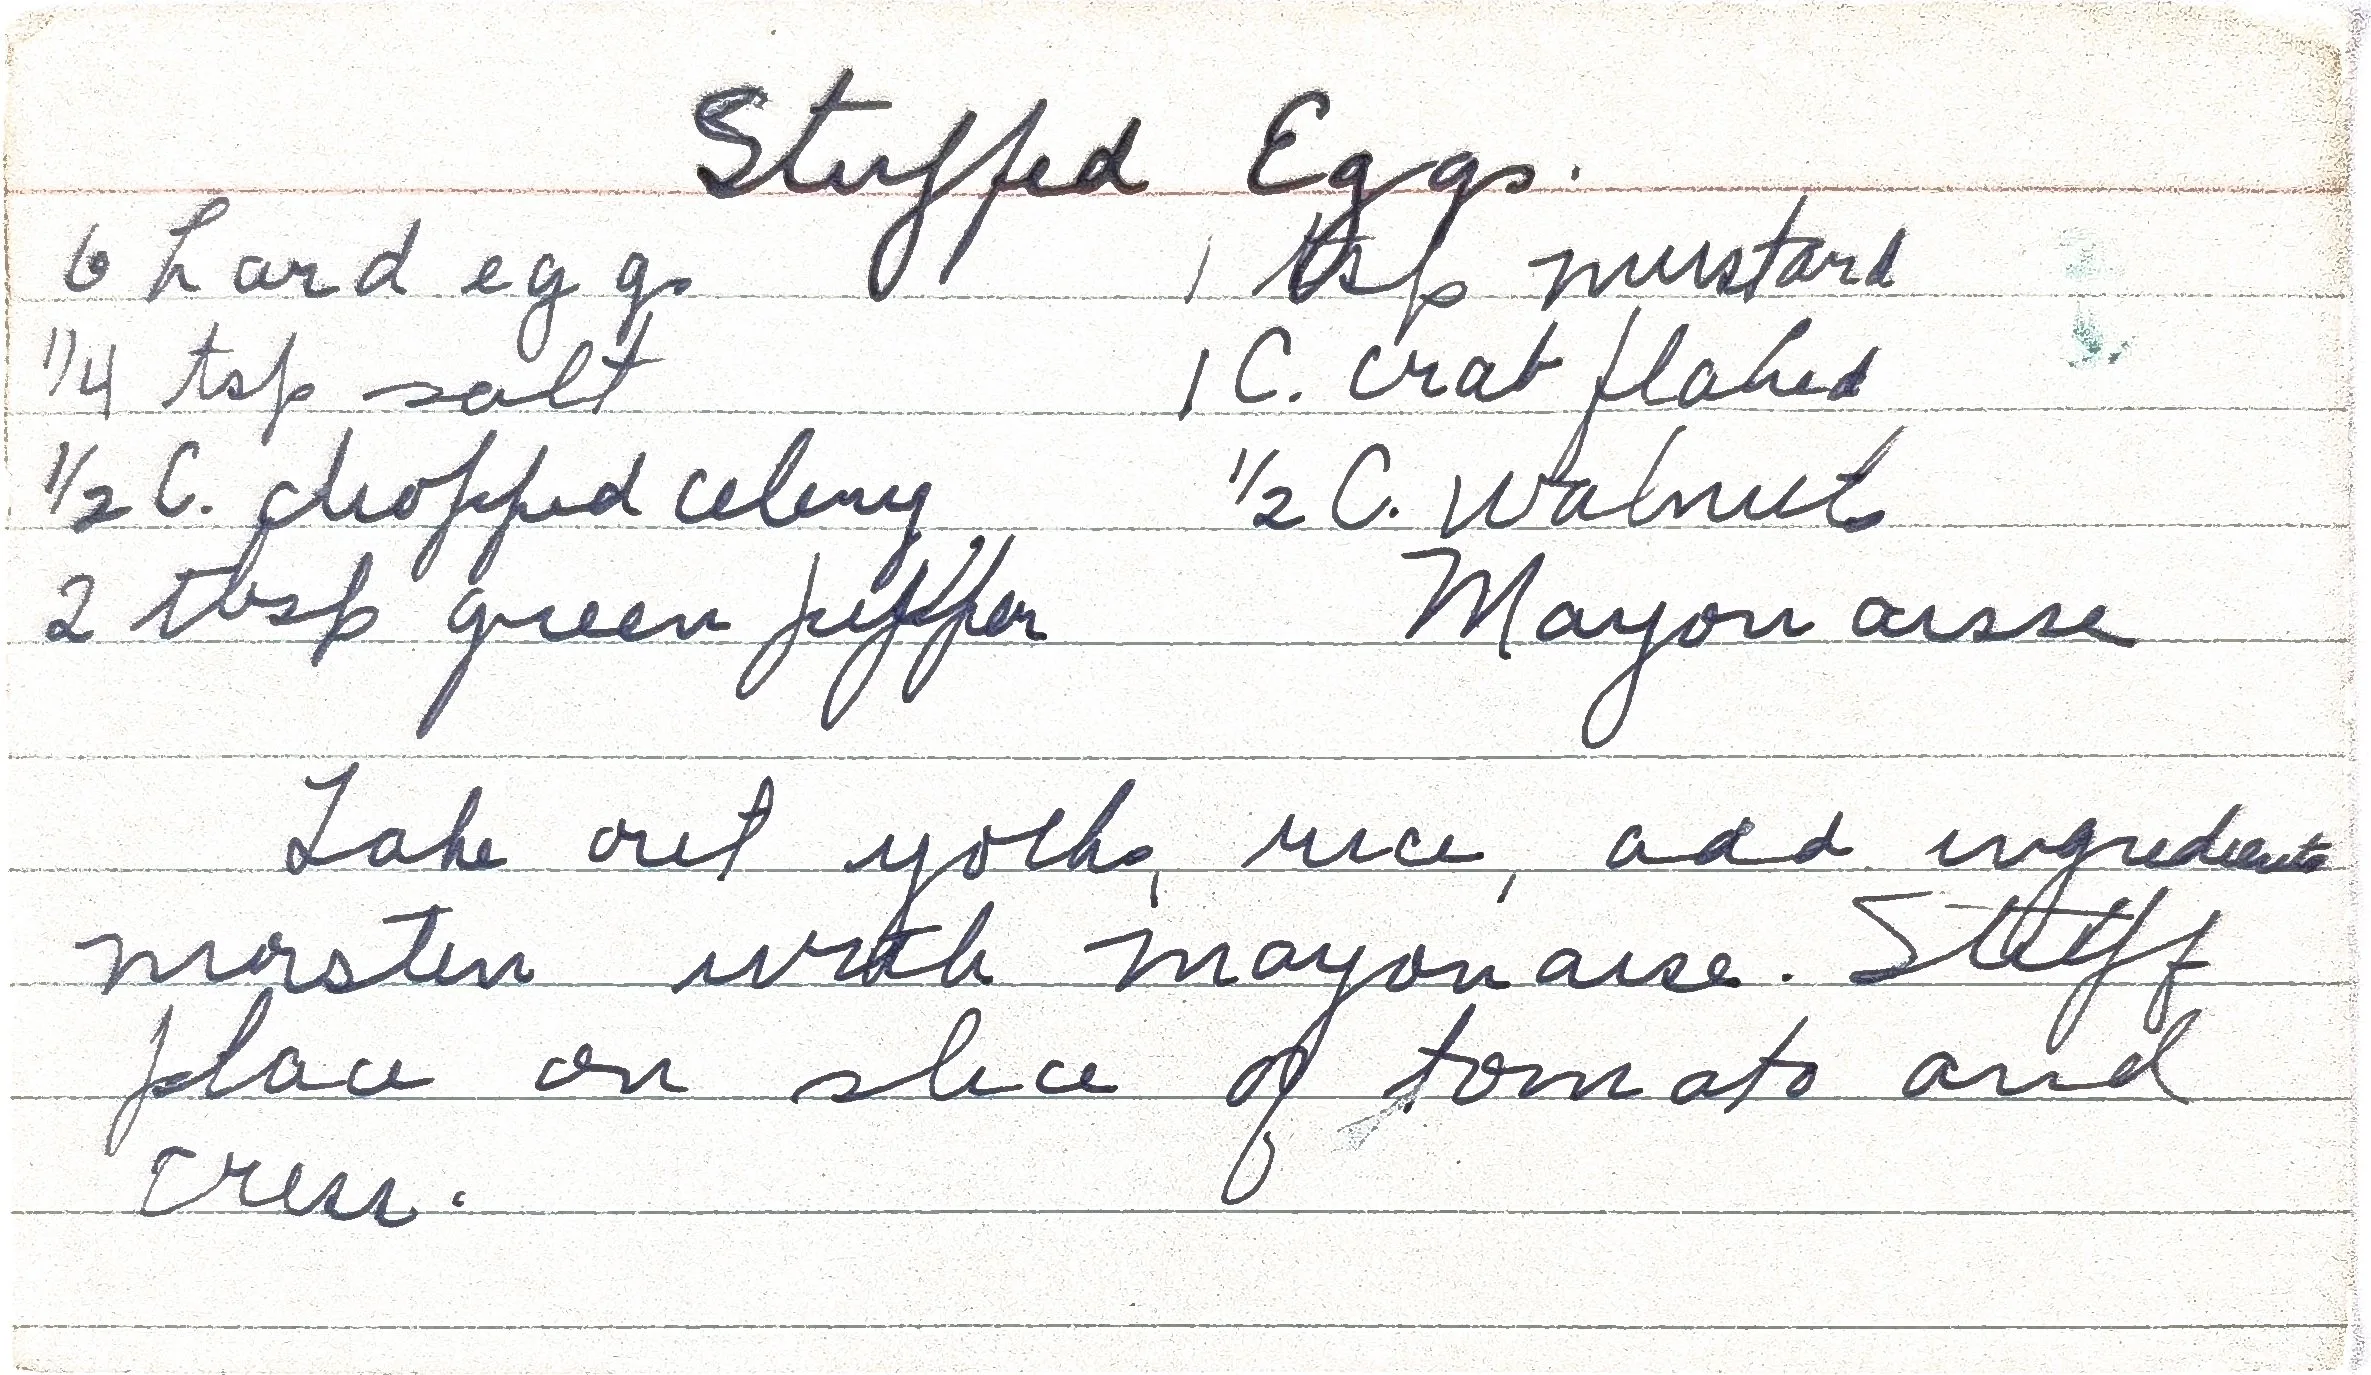 Stuffed Eggs.
6 hard eggs 1 tsp mustard
1/4 tsp salt 1 C. crab flaked
1/2 C. chopped celery 1/2 C. Walnuts
2 tbsp green pepper Mayonaisse
Take out yolks, rice, add ingredients
moisten with mayonaise. Stuff
place on slice of tomato and
cress.